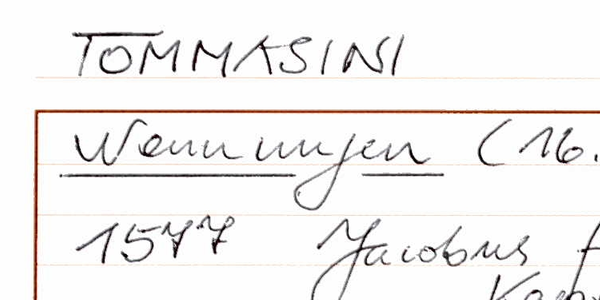 TOMMASINI
Wennungen (16.
1577 Jacobus f